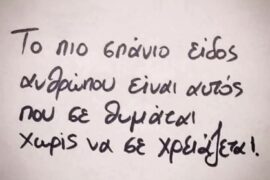 Το πιο σπάνιο είδος
ανθρώπου είναι αυτός
που σε θυμάται
χωρίς να σε χρειάζεται!